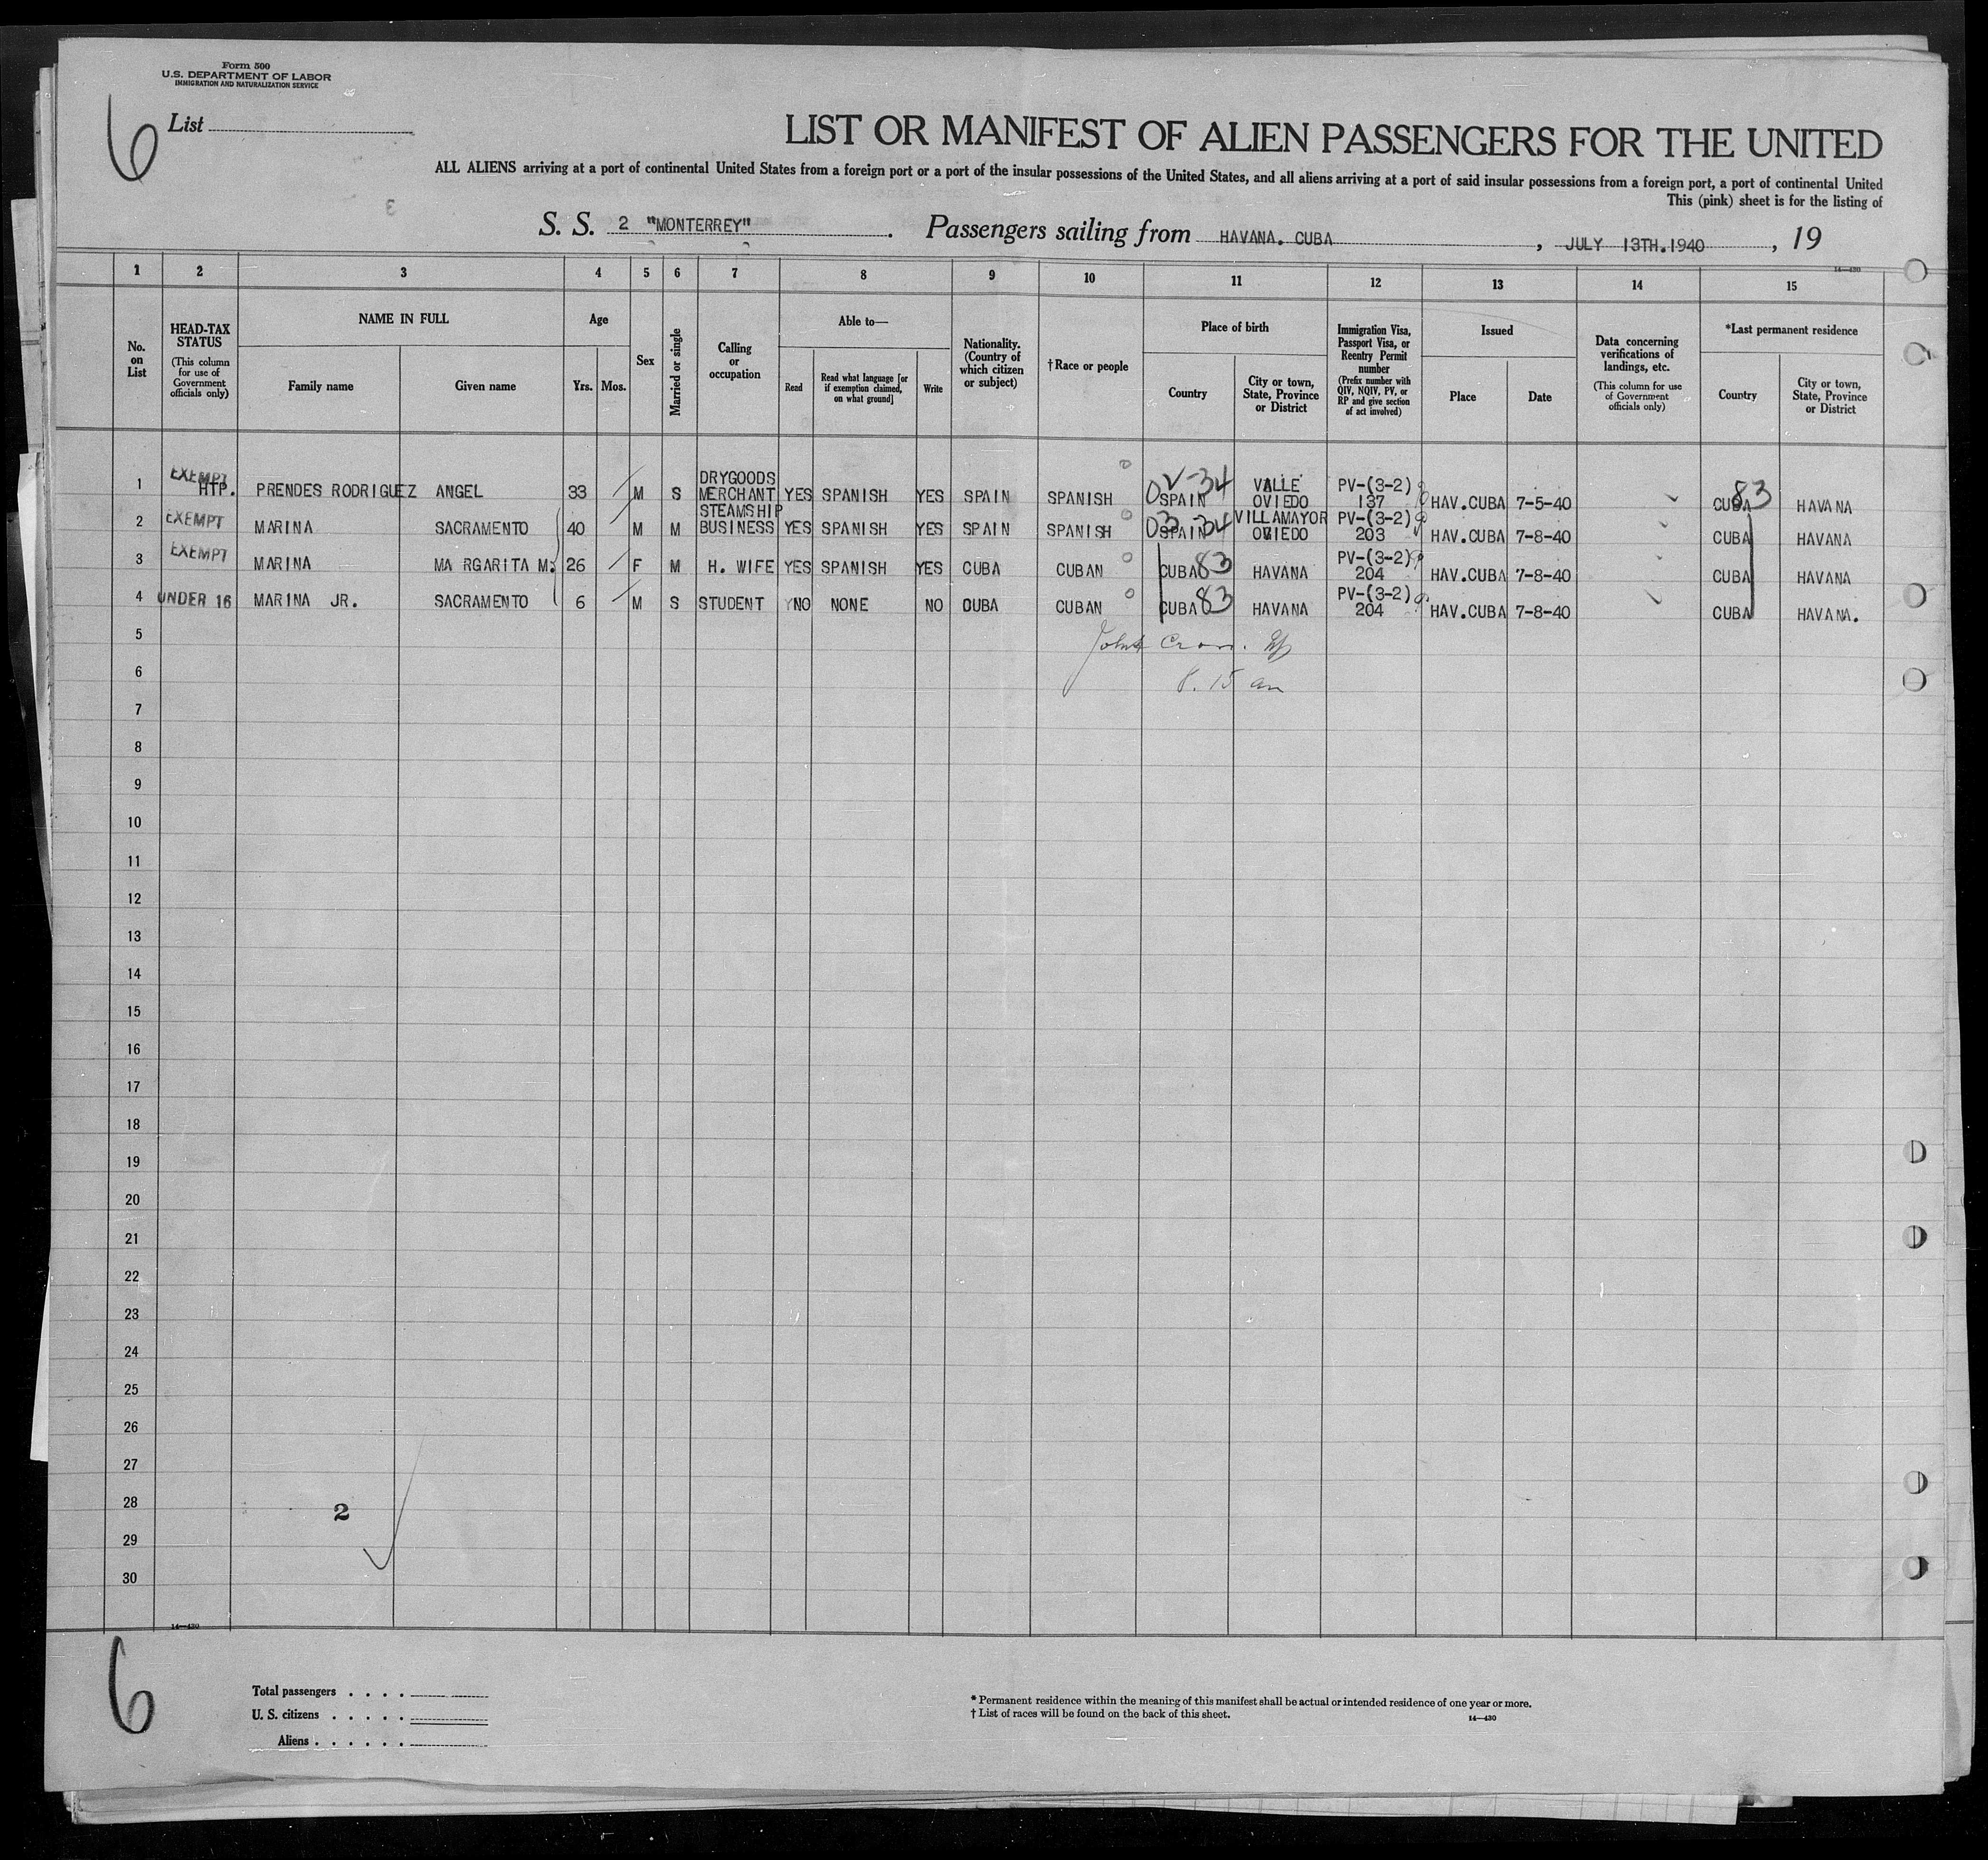 Form 500
U.S. DEPARTMENT OF LABOR
IMMIGRATION AND NATURALIZATION SERVICE
6
List
LIST OR MANIFEST OF ALIEN PASSENGERS FOR THE UNITED
ALL ALIENS arriving at a port of continental United States from a foreign port or a port of the insular possessions of the United States, and all aliens arriving at a port of said insular possessions from a foreign port, a port of continental United
This (pink) sheet is for the listing of
S. S. 2 "MONTERREY". Passengers sailing from HAVANA. CUBA, JULY 13TH.1940, 19
14—430
1 2 3 4 5 6 7 8 9 10 11 12 13 14 15
No. on List
HEAD-TAX STATUS
(This column for use of Government officials only)
NAME IN FULL
Family name
Given name
Age
Yrs. Mos.
Sex
Married or single
Calling or occupation
Able to—
Read
Read what language [or if exemption claimed, on what ground]
Write
Nationality. (Country of which citizen or subject)
†Race or people
Place of birth
Country
City or town, State, Province or District
Immigration Visa, Passport Visa, or Reentry Permit number
(Prefix number with QIV, NQIV, PV, or RP and give section of act involved)
Issued
Place
Date
Data concerning verifications of landings, etc.
(This column for use of Government officials only)
*Last permanent residence
Country
City or town, State, Province or District
1 EXEMPT HTP. PRENDES RODRIGUEZ ANGEL 33 M S DRYGOODS MERCHANT YES SPANISH YES SPAIN SPANISH SPAIN VALLE OVIEDO PV-(3-2) 137 HAV.CUBA 7-5-40 CUBA 83 HAVANA
2 EXEMPT MARINA SACRAMENTO 40 M M STEAMSHIP BUSINESS YES SPANISH YES SPAIN SPANISH SPAIN VILLAMAYOR OVIEDO PV-(3-2) 203 HAV.CUBA 7-8-40 CUBA HAVANA
3 EXEMPT MARINA MA RGARITA M. 26 F M H. WIFE YES SPANISH YES CUBA CUBAN CUBA 83 HAVANA PV-(3-2) 204 HAV.CUBA 7-8-40 CUBA HAVANA
4 UNDER 16 MARINA JR. SACRAMENTO 6 M S STUDENT NO NONE NO CUBA CUBAN CUBA 83 HAVANA PV-(3-2) 204 HAV.CUBA 7-8-40 CUBA HAVANA.
5
6 8.15 am
7
8
9
10
11
12
13
14
15
16
17
18
19
20
21
22
23
24
25
26
27
28 2
29
30
14—430
6
Total passengers . . . .
U. S. citizens . . . . .
Aliens . . . . . .
* Permanent residence within the meaning of this manifest shall be actual or intended residence of one year or more.
† List of races will be found on the back of this sheet.
14—430